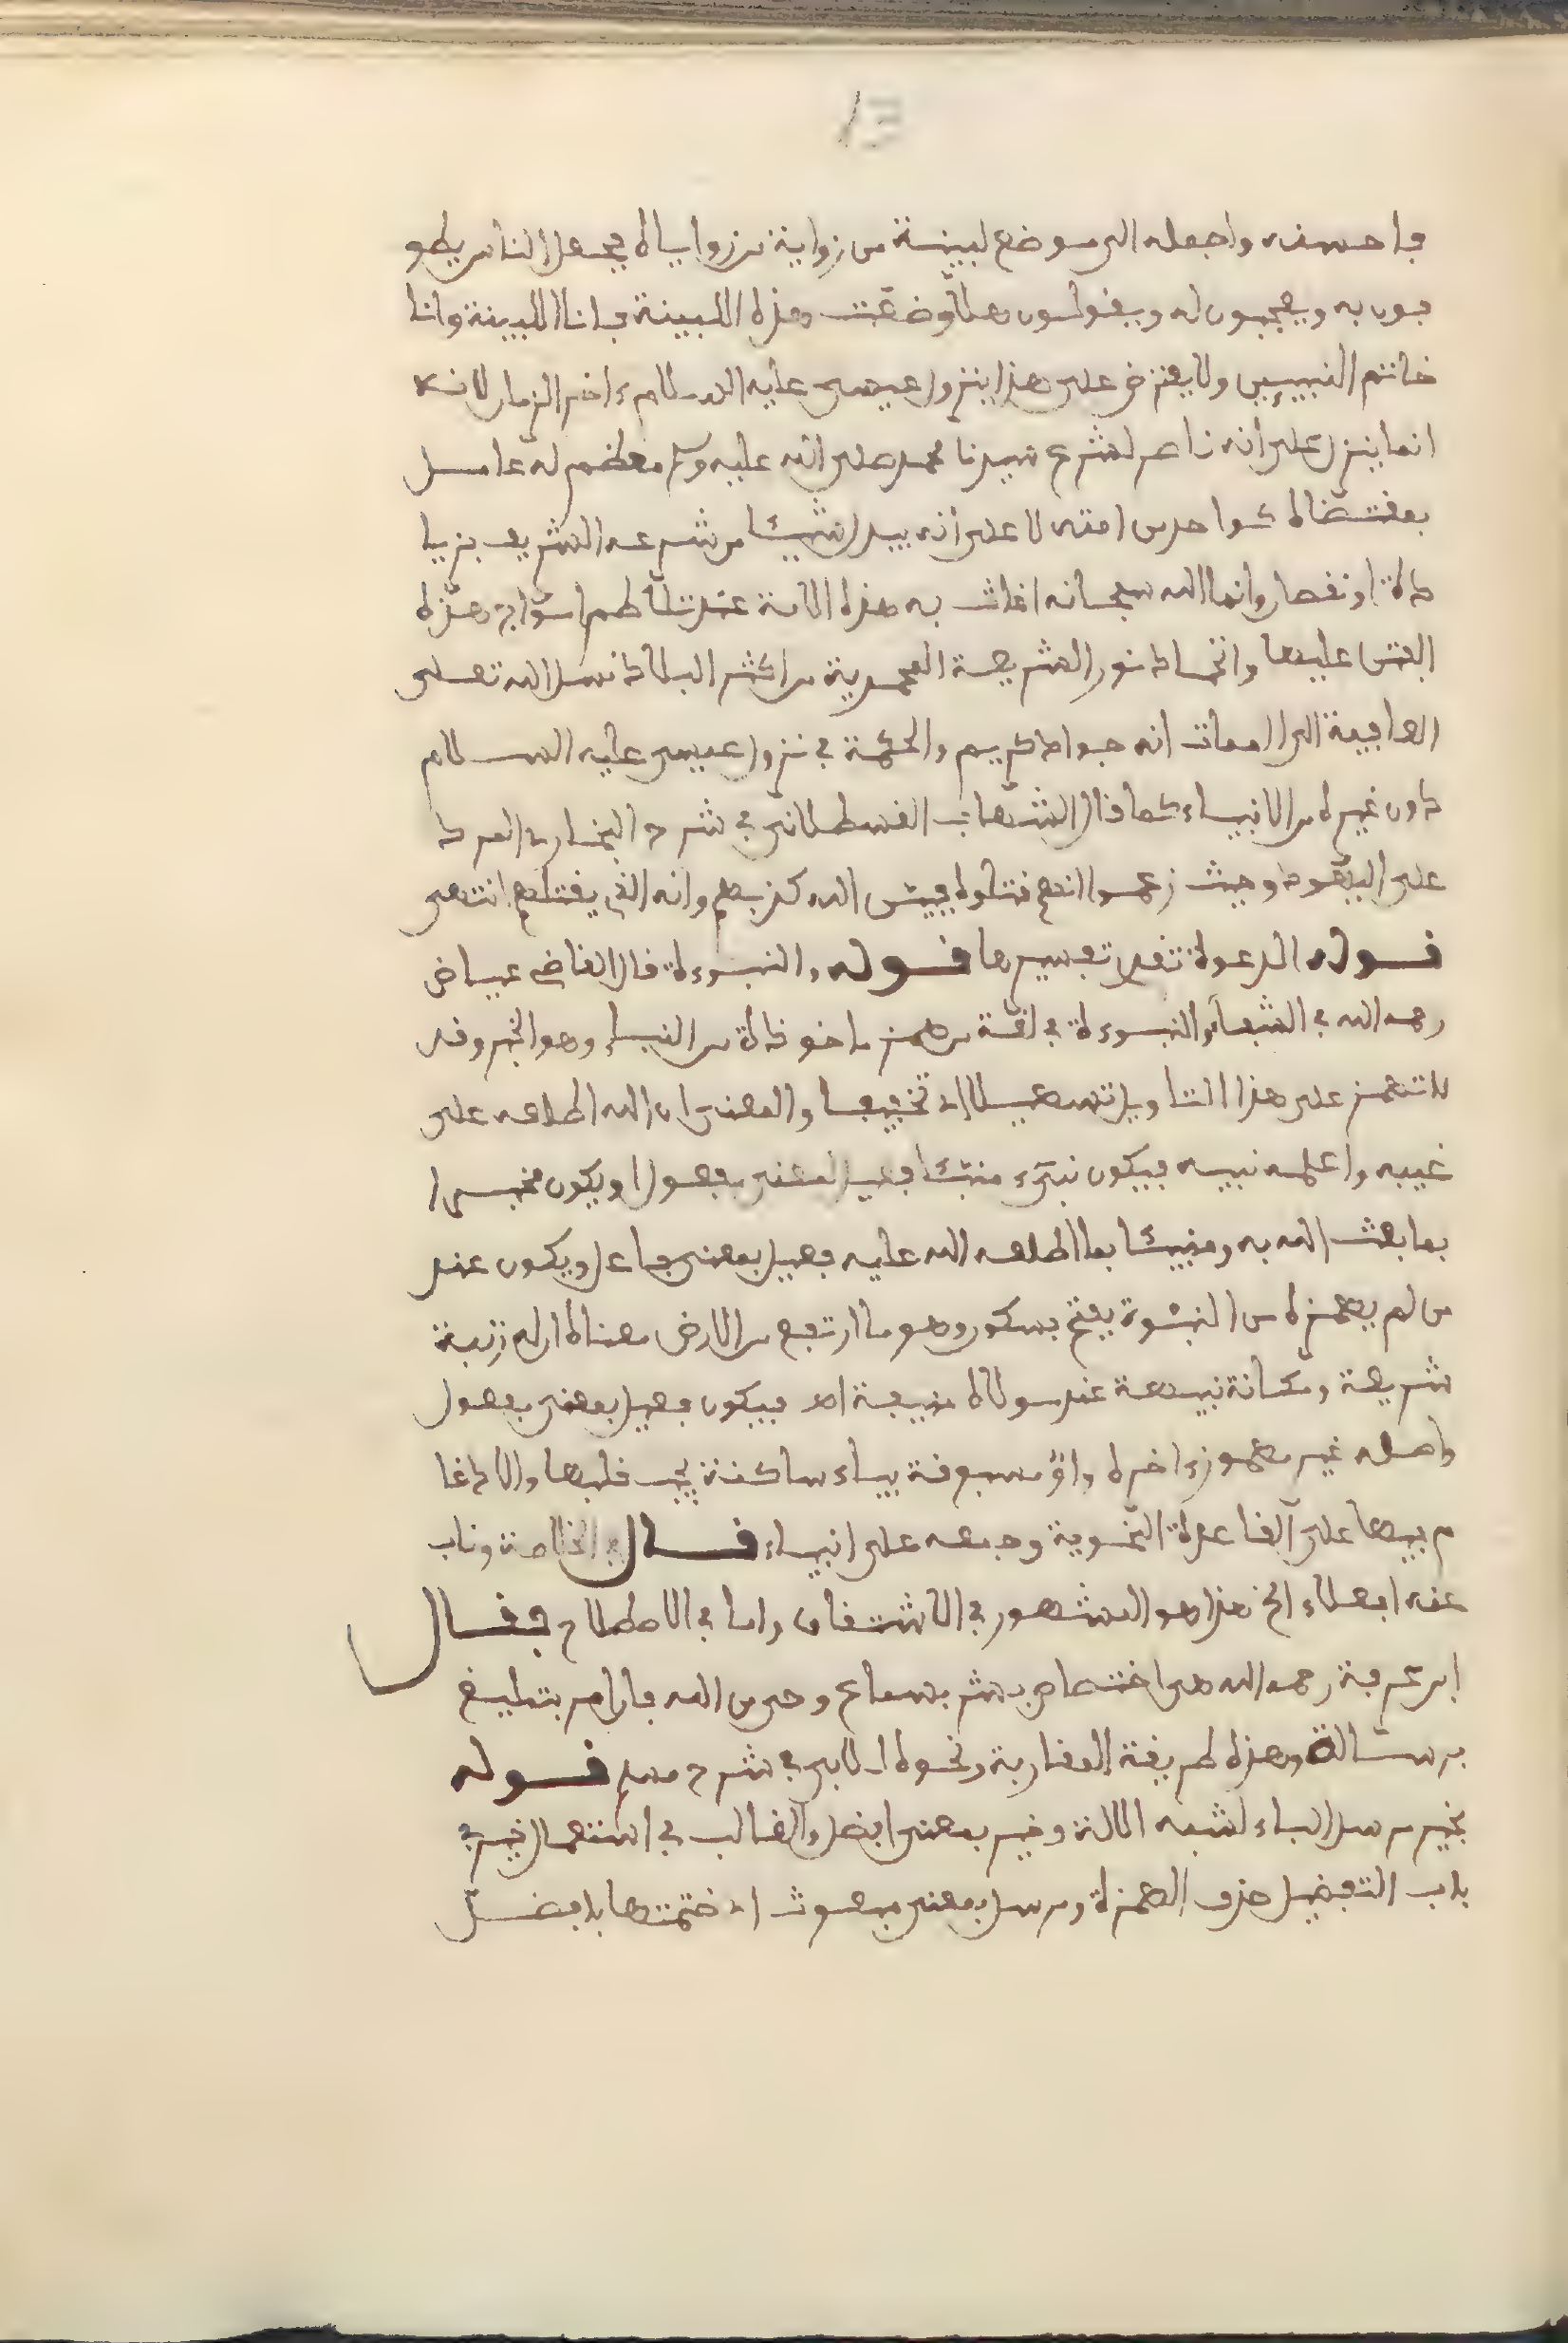 13
فاحسنه واجمله الى موضع لبينة من زواية من زواياه فجعل الناس يطو
فون به ويعجبون له ويقولون هلا وضعت هذه اللبينة فانا اللبينة وانا
خاتم النبيين ولا يعترض على هذا بنزول عيسى عليه السلام ءاخر الزمان لانه
انما ينزل على انه ناصر لشرع سيدنا محمد صلى الله عليه وسلم معظم له عامل
بمقتضاه كواحد من امته لا على انه يبدل شيئا من شرعه الشريف بزيا
دة او نقصان وانما الله سبحانه اغاث به هذه الامة عند تلاطم امواج هذه
الفتن عليها وانخماد نور الشريعة المحمدية من اكثر البلاد نسئل الله تعلى
العافية الى الممات انه جواد كريم والحكمة في نزول عيسى عليه السلام
دون غيره من الانبياء كما قال الشهاب القسطلاني في شرح البخاري الرد
على اليهود حيث زعموا انهم قتلوه فبين الله كذبهم وانه الذي يقتلهم انتهى
قوله الدعوة تقدم تفسيرها قوله والنبوءة قال القاضي عياض
رحمه الله في الشفاء والنبوءة في لغة من همز ماخوذة من النباء وهو الخبر وقد
لا تهمز على هذا التاويل تسهيلا اي تخفيفا والمعنى ان الله اطلعه على
غيبه واعلمه نبيه فيكون نبيء منبئا فعيل بمعنى مفعول او يكون مخبرا
بما بعث الله به ومنبئا بما اطلعه الله عليه فعيل بمعنى فاعل ويكون عند
من لم يهمزه من النبوة بفتح فسكون وهو ما ارتفع من الارض معناه ان له رتبة
شريفة ومكانة نبيهة عند مولاه منيفة اهـ فيكون فعيل بمعنى مفعول
واصله غير مهموز ءاخره واو مسبوقة بياء ساكنة يجب قلبها والادغا
م فيها على القاعدة النحوية وجمعه على انبياء قال في الخلاصة وناب
عنه افعلاء الخ هذا هو المشهور في الاشتقاق واما في الاصطلاح فقال
ابن عرفة رحمه الله هي اختصاص بشر بسماع وحي من الله فان امر بتبليغ
فرسالة وهذه طريقة المغاربة ونحوه للابي في شرح مسلم قوله
بخير مرسل الباء لشبه الالة وخير بمعنى افضل والغالب في استعمال خير في
باب التفضيل حذف الهمزة ومرسل بمعنى مبعوث اي ختمتها بافضل